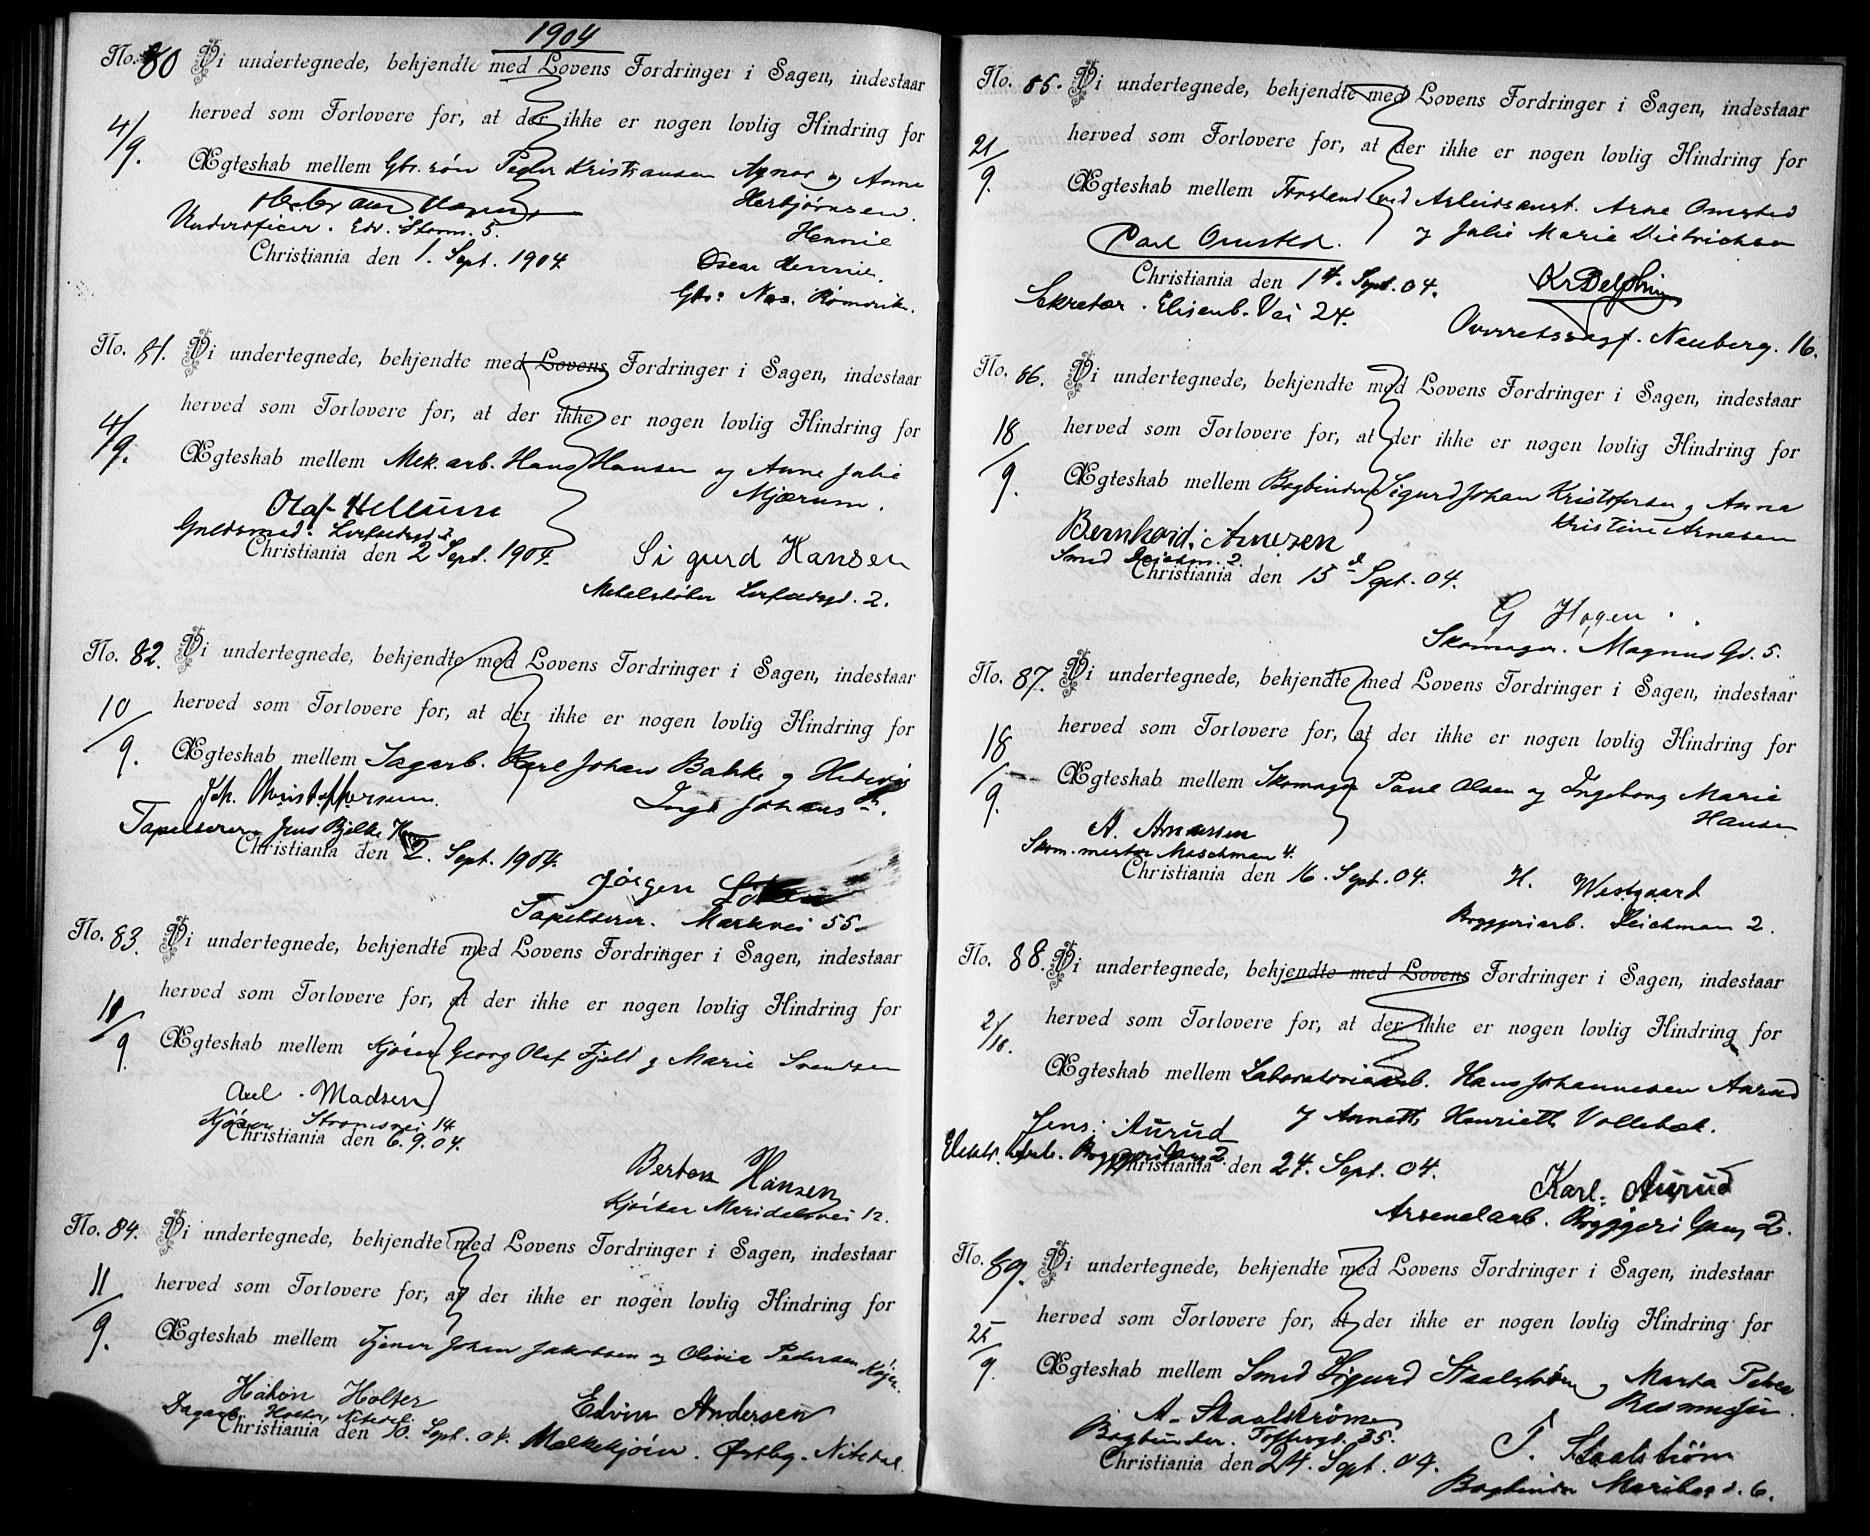 1904
No. 80 Vi undertegnede, bekjendte med Lovens Fordringer i Sagen, indestaar
herved som Forlovere for, at der ikke er nogen lovlig Hindring for
4/9.
Ægteskab mellem Gbr. søn Peder Kristiansen Agner og Anna
Herbjørnsen.
Underofficer. Edv. Storm. 5.
Hennie
Christiania den 1. Sept. 1904.
Oscar Hennie.
Gbr: Nes. Romerike.
No. 81. Vi undertegnede, bekjendte med Lovens Fordringer i Sagen, indestaar
herved som Forlovere for, at der ikke er nogen lovlig Hindring for
4/9.
Ægteskab mellem Mek. arb. Hans Hansen og Anne Julie
Mjærum.
Olaf Hellum
Guldsmed.
Christiania den 2 Sept. 1904.
Sigurd Hansen
Metalstøber 2.
No. 82. Vi undertegnede, bekjendte med Lovens Fordringer i Sagen, indestaar
herved som Forlovere for, at der ikke er nogen lovlig Hindring for
10/9.
Ægteskab mellem Sagarb. Karl Johan Bakke og Hedevig
Inga Johans
Joh. Christoffersen.
Tapetserer Jens Bjelke
Christiania den 2. Sept. 1904.
Jørgen
Tapetserer. Markvei 55
No. 83. Vi undertegnede, bekjendte med Lovens Fordringer i Sagen, indestaar
herved som Forlovere for, at der ikke er nogen lovlig Hindring for
18/9
Ægteskab mellem Kjører Georg Olaf Fjeld og Marie Svendsen
Axel Madsen
Kjører Strømsvei 14
Christiania den 6.9.04.
Berton Hansen
Kjørker Maridalsvei 12.
No. 84. Vi undertegnede, bekjendte med Lovens Fordringer i Sagen, indestaar
herved som Forlovere for, at der ikke er nogen lovlig Hindring for
11/9.
Ægteskab mellem Tjener Johan Jakobsen og Olivia Pedersen
Håkon Holter
Dagarb. Holter, Nitedal.
Christiania den 10. Sept. 04.
Edvin Andersen
Melkekjører. Østby. Nitedal.
No. 85. Vi undertegnede, bekjendte med Lovens Fordringer i Sagen, indestaar
herved som Forlovere for, at der ikke er nogen lovlig Hindring for
21/9.
Ægteskab mellem Forstand ved Arbeidsanst. Arne Omsted
og Julie Marie Dietrichsen
Carl Omsted.
Christiania den 14. Sept. 04.
Kr Delphin
Sekretær. Elisenb. Vei 24.
Overretssagf. Neuberg. 16.
No. 86. Vi undertegnede, bekjendte med Lovens Fordringer i Sagen, indestaar
herved som Forlovere for, at der ikke er nogen lovlig Hindring for
18/9.
Ægteskab mellem Bogbinder Sigurd Johan Kristofersen og Anna
Kristine Arnesen
Bernhard Arnesen
Smed Deichm. 2.
Christiania den 15 Sept. 04.
G Hogen
Skomager. Magnus Gd. 5.
No. 87. Vi undertegnede, bekjendte med Lovens Fordringer i Sagen, indestaar
herved som Forlovere for, at der ikke er nogen lovlig Hindring for
18/9.
Ægteskab mellem Skomager Paul Olsen og Ingeborg Marie
Hansen
A. Andersen
Skom. mester Maschman 4.
Christiania den 16. Sept. 04.
H. Westgaard
Bryggeriarb. Deichman 2.
No. 88. Vi undertegnede, bekjendte med Lovens Fordringer i Sagen, indestaar
herved som Forlovere for, at der ikke er nogen lovlig Hindring for
2/10.
Ægteskab mellem Laboratoriearb. Hans Johannesen Aurud
og Annette Henriette Vollebæk.
Jens: Aurud
Elektr. Arb. Bryggeri Gang 2
Christiania den 24. Sept. 04.
Karl. Aurud
Arsenalarb. Bryggeri Gang 2.
No. 89. Vi undertegnede, bekjendte med Lovens Fordringer i Sagen, indestaar
herved som Forlovere for, at der ikke er nogen lovlig Hindring for
25/9
Ægteskab mellem Smed Sigurd Staalstrøm og Marta Petra
Rasmussen.
A. Staalstrøm
Bogbinder. Toftesgd. 35.
Christiania den 24. Sept. 04.
T. Staalstrøm
Bogbinder Maribogd. 6.